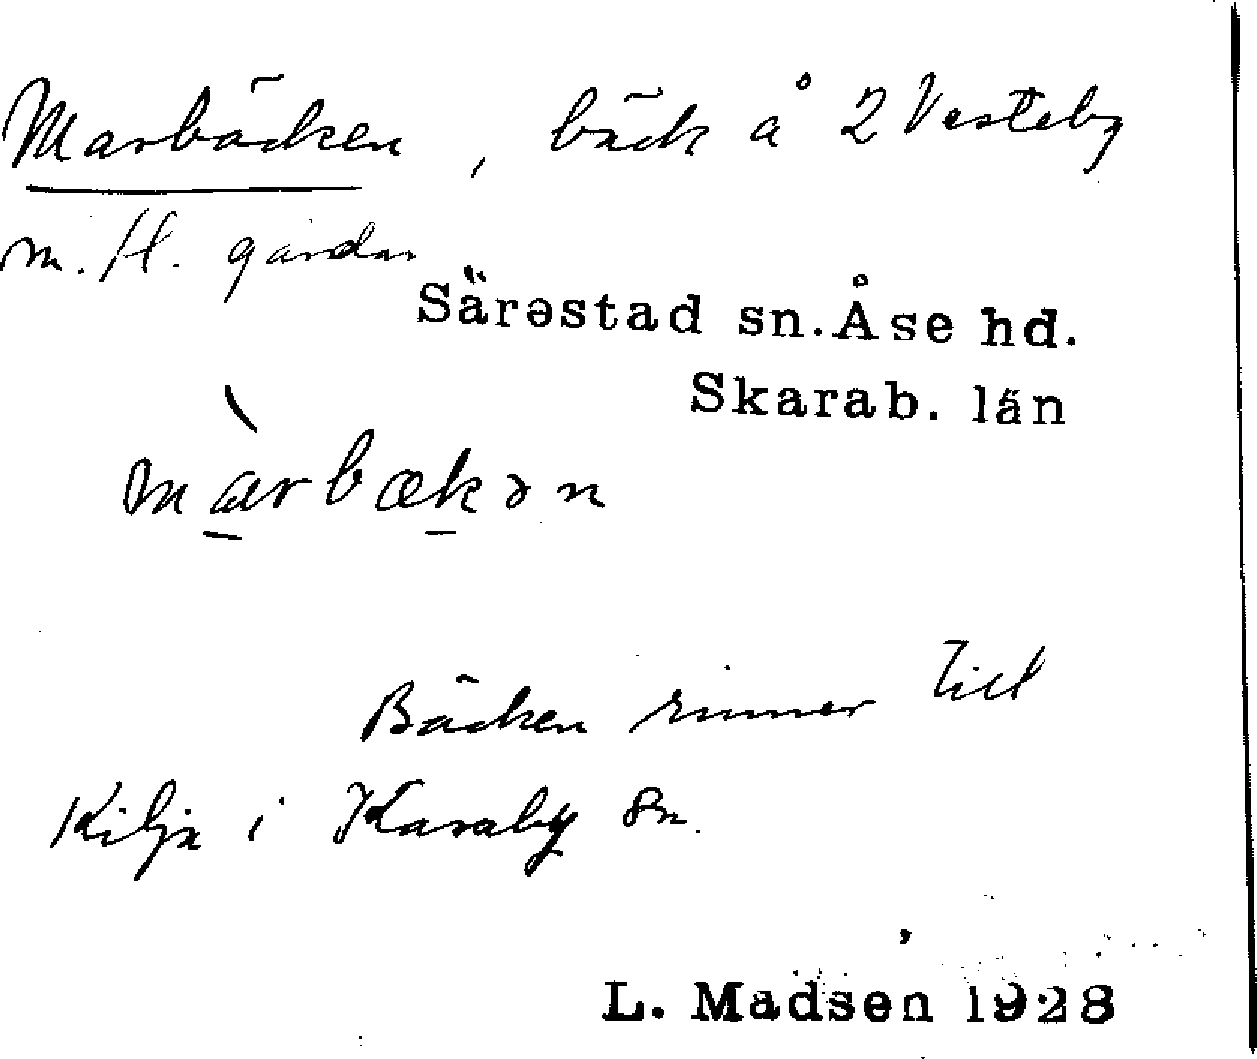 Marbäcken, bäck å 2 Västeby
m. fl. gårdar
Särestad sn. Åse hd.
Skarab. län
marbækən
Bäcken rinner till
Kilja i Karaby sn.
L. Madsen 1928